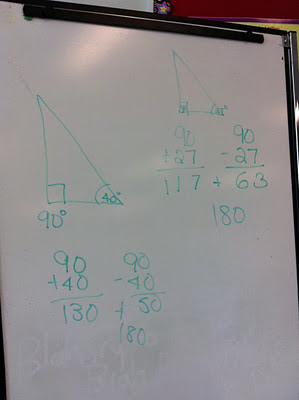 40°
90°
90 90
+40 -40
130 + 50
180
90 90
+27 -27
117 + 63
180